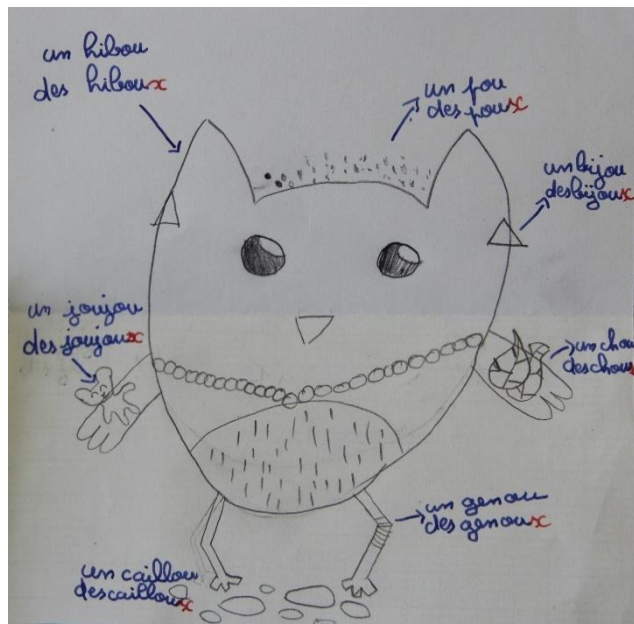 un hibou
des hiboux
un pou
des poux
un bijou
des bijoux
un joujou
des joujoux
un chou
des choux
un genou
des genoux
un caillou
des cailloux